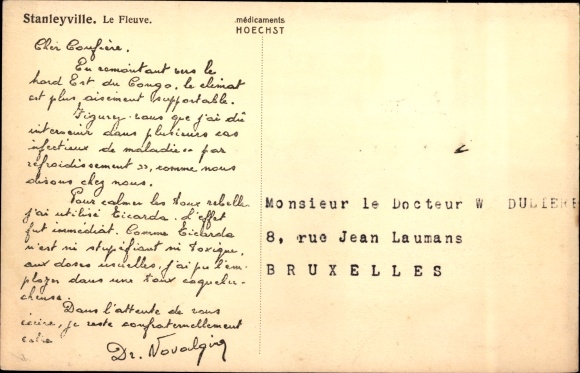 Stanleyville. Le Fleuve.
médicaments
HOECHST
Cher Confrère.
En remontant vers le
Nord Est du Congo, le climat
est plus aisément supportable.
Figurez-vous que j'ai dû
intervenir dans plusieurs cas
infectieux de maladies « par
refroidissement », comme nous
disons chez nous.
Pour calmer les toux rebelles
j'ai utilisé Ticarda. L'effet
fut immédiat. Comme Ticarda
n'est ni stupéfiant ni toxique,
aux doses usuelles, j'ai pu l'em-
ployer dans une toux coquelu-
cheuse.
Dans l'attente de vous
écrire, je reste confraternellement
vôtre
Dr. Novalgin
Monsieur le Docteur W DULIERE
8, rue Jean Laumans
BRUXELLES